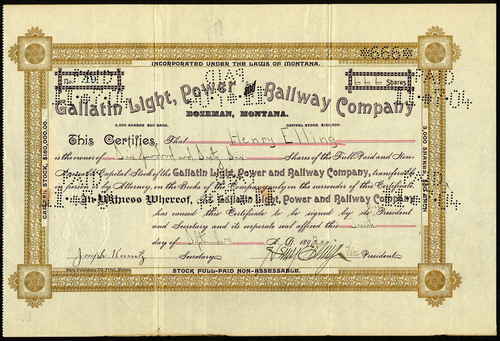 INCORPORATED UNDER THE LAWS OF MONTANA.
*666*
666 Shares
Gallatin Light, Power and Railway Company
BOZEMAN, MONTANA.
3,000 SHARES $50 EACH. CAPITAL STOCK, $150,000.
This Certifies, That Henry Elling
is the owner of Six hundred and Sixty Six Shares of the Full Paid and Non-
Assessable Capital Stock of the Gallatin Light, Power and Railway Company, transferable
in person or by Attorney, on the Books of the Company only on the surrender of this Certificate.
In Witness Whereof, the Gallatin Light, Power and Railway Company,
has caused this Certificate to be signed by its President
and Secretary and its corporate seal affixed this
day of A. D. 189
Joseph Kountz Secretary. Henry Elling Vice President.
STOCK FULL-PAID NON-ASSESSABLE.
CAPITAL STOCK, $150,000.00.
3,000 SHARES, $50 EACH